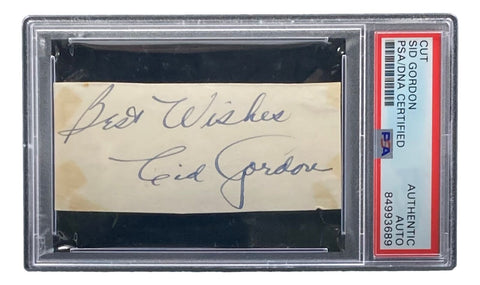 Best Wishes
Sid Gordon
CUT
SID GORDON
PSA/DNA CERTIFIED
PSA
AUTHENTIC
AUTO
84993689